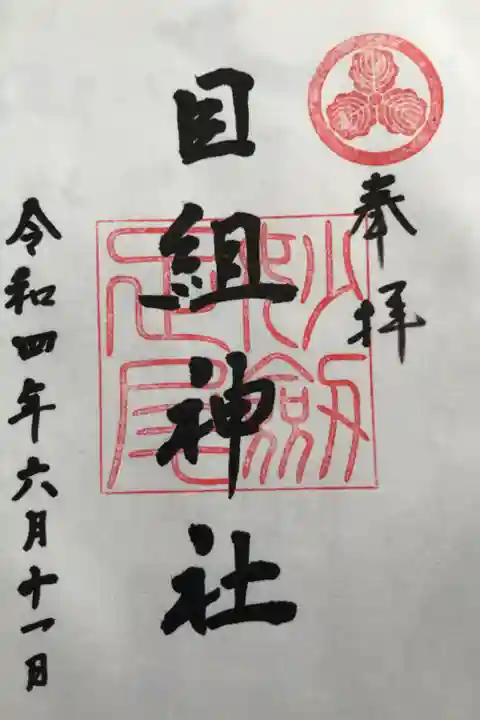 奉拝
目組神社
令和四年六月十一日